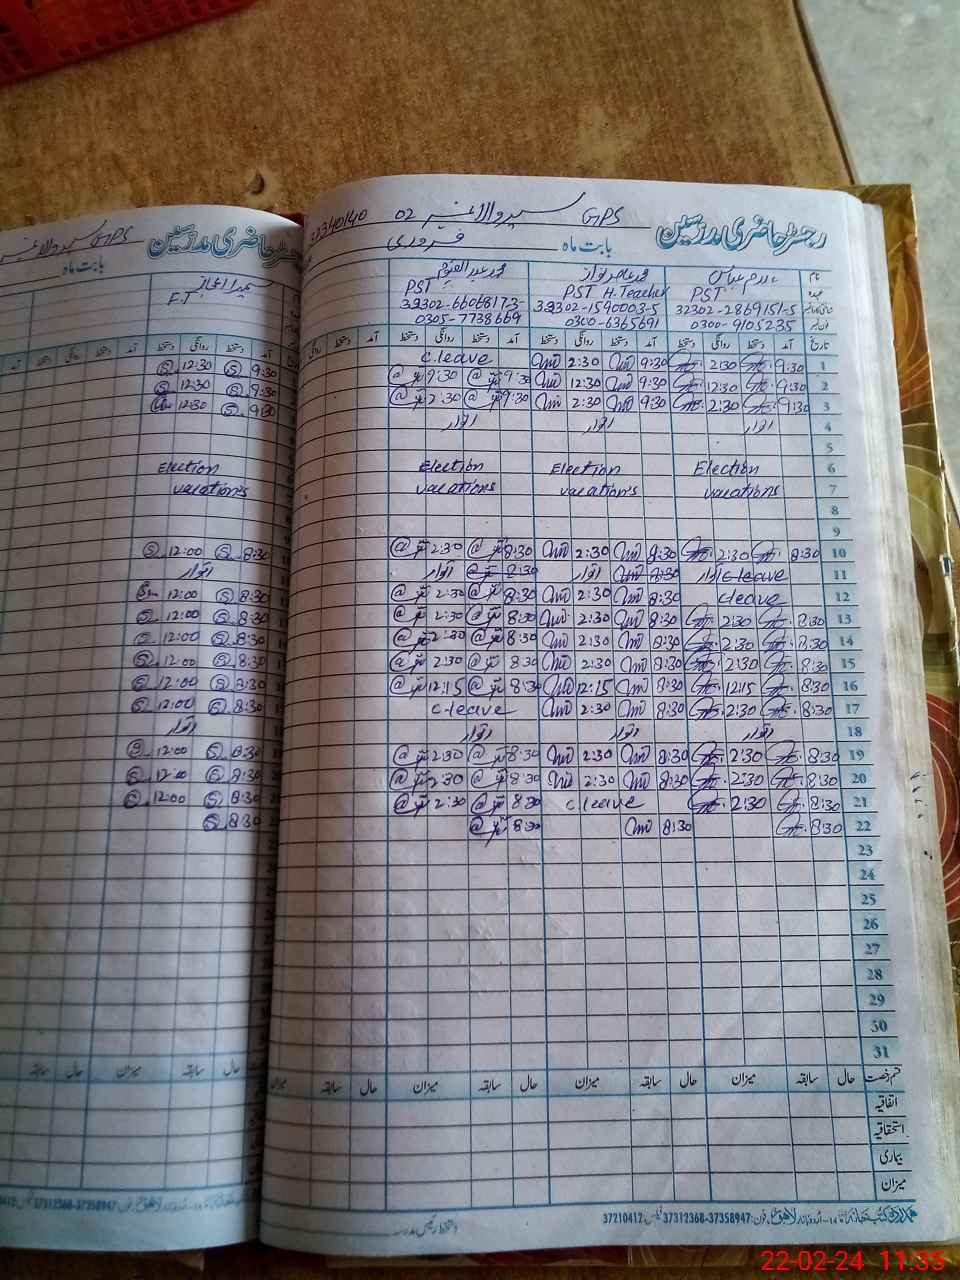 رجسٹر حاضری مدرسین GPS سیر والا نمبر 02 32340140
بابت ماہ فروری
نام محمد عامر نواز محمد عبدالقیوم
عہدہ PST PST H.Teacher PST
32302-2869151-5 32302-1590003-5 32302-6606817-3
0300-9105235 0300-6365691 0305-7738669
تاریخ آمد دستخط روانگی دستخط آمد دستخط روانگی دستخط آمد دستخط روانگی دستخط آمد دستخط روانگی
1 9:30 2:30 9:30 2:30 C.leave
2 9:30 12:30 9:30 12:30 9:30 9:30
3 9:30 2:30 9:30 2:30 9:30 2:30
4 اتوار اتوار اتوار
5
6 Election Election Election
7 vacations vacation's vacations
8
9
10 8:30 2:30 8:30 2:30 8:30 2:30
11 C-leave اتوار 8:30 اتوار 8:30 اتوار
12 C leave 8:30 2:30 8:30 2:30
13 8:30 2:30 8:30 2:30 8:30 2:30
14 8:30 2:30 8:30 2:30 8:30 2:30
15 8:30 2:30 8:30 2:30 8:30 2:30
16 8:30 12:15 8:30 12:15 8:30 12:15
17 8:30 2:30 8:30 2:30 C-leave
18 اتوار اتوار اتوار
19 8:30 2:30 8:30 2:30 8:30 2:30
20 8:30 2:30 8:30 2:30 8:30 2:30
21 8:30 2:30 C leave 8:30 2:30
22 8:30 8:30 8:30
23
24
25
26
27
28
29
30
31
قسم رخصت حال سابقہ میزان حال سابقہ میزان حال سابقہ میزان حال سابقہ میزان
اتفاقیہ
استحقاقیہ
بیماری
میزان
اردو بازار لاہور فون: 37358947-37312368 فیکس: 37210412
دستخط رئیس مدرسہ
رجسٹر حاضری مدرسین GPS سیر والا نمبر
بابت ماہ
E.T
آمد دستخط روانگی دستخط آمد دستخط روانگی دستخط آمد
9:30 12:30
9:30 12:30
9:30 12:30
Election
vacation's
8:30 12:00
اتوار
8:30 12:00
8:30 12:00
8:30 12:00
8:30 12:00
8:30 12:00
8:30 12:00
اتوار
8:30 12:00
8:30 12:00
8:30 12:00
8:30
حال سابقہ میزان حال سابقہ
37358947-37312368
22-02-24 11:35